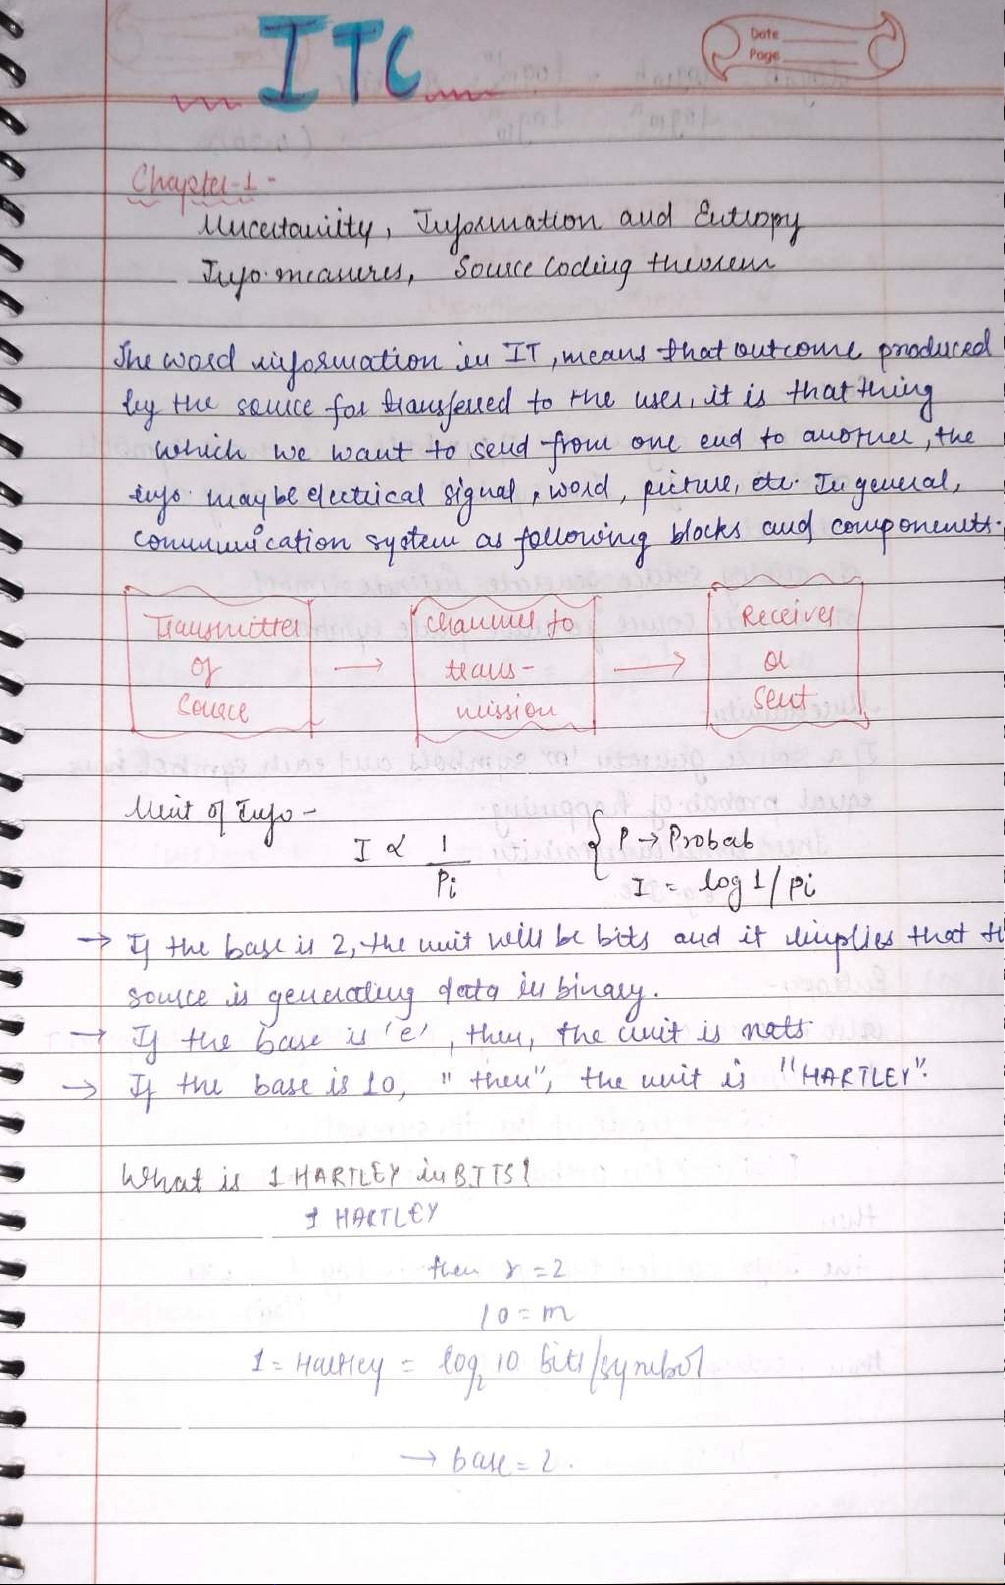 ITC
Date
Page
Chapter-1 -
Uncertainity, Information and Entropy
Info. measures, Source Coding theorem
The word information in IT, means that outcome produced
by the source for transferred to the user, it is that thing
which we want to send from one end to another, the
info. may be electrical signal, word, picture, etc. In general,
communication system as following blocks and components.
Transmitter → channel to → Receiver
of trans- or
Source mission sent
Unit of Info -
I ∝ 1/Pi { P → Probab
I = log 1/Pi
→ If the base is 2, the unit will be bits and it implies that
source is generating data in binary.
→ If the base is 'e', then, the unit is nats.
→ If the base is 10, "then", the unit is "HARTLEY".
What is 1 HARTLEY in BITS?
1 HARTLEY
then r = 2
10 = m
1 = Hartley = log₂ 10 bits/symbol
→ base = 2.